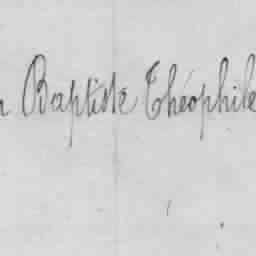 n Baptiste Théophile